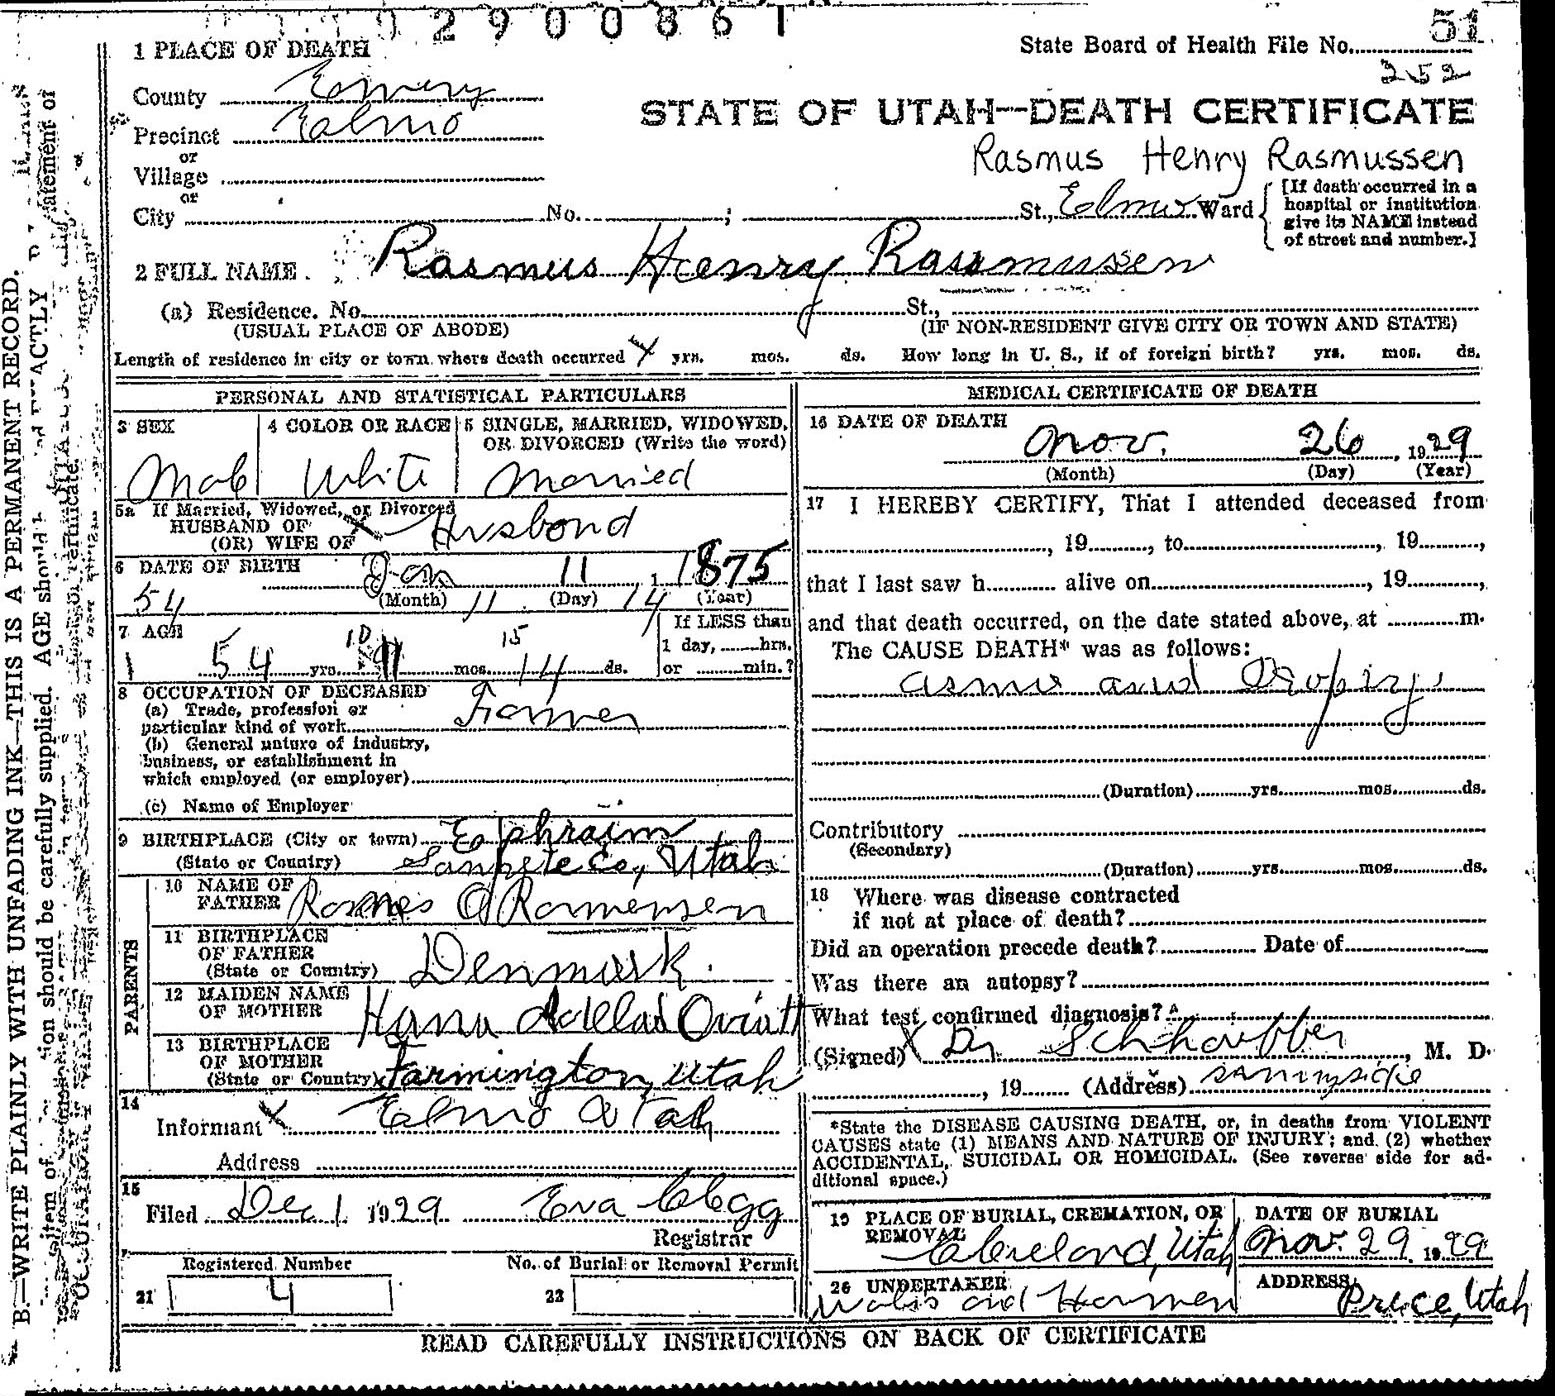 2900861
51
State Board of Health File No.
252
1 PLACE OF DEATH
County Emery
STATE OF UTAH--DEATH CERTIFICATE
Precinct Elmo
or
Village
Rasmus Henry Rasmussen
or
City No. ; St., Elmo Ward
[If death occurred in a
hospital or institution
give its NAME instead
of street and number.]
2 FULL NAME Rasmus Henry Rasmussen
(a) Residence. No. St.,
(USUAL PLACE OF ABODE) (IF NON-RESIDENT GIVE CITY OR TOWN AND STATE)
Length of residence in city or town where death occurred yrs. mos. ds. How long in U. S., if of foreign birth? yrs. mos. ds.
PERSONAL AND STATISTICAL PARTICULARS
3 SEX
4 COLOR OR RACE
5 SINGLE, MARRIED, WIDOWED,
OR DIVORCED (Write the word)
White Married
5a If Married, Widowed, or Divorced
HUSBAND OF
(OR) WIFE OF
Husbond
6 DATE OF BIRTH Jan 11, 1 1875
(Month) (Day) (Year)
54 11 14
7 AGE
If LESS than
1 day, hrs.
or min.?
10 15
54 yrs. 11 mos. 14 ds.
8 OCCUPATION OF DECEASED
(a) Trade, profession or
particular kind of work Farmer
(b) General nature of industry,
business, or establishment in
which employed (or employer)
(c) Name of Employer
9 BIRTHPLACE (City or town) Ephraim
(State or Country) Sanpete Co, Utah
PARENTS
10 NAME OF
FATHER
11 BIRTHPLACE
OF FATHER
(State or Country) Denmark.
12 MAIDEN NAME
OF MOTHER Oviatt
13 BIRTHPLACE
OF MOTHER
(State or Country) Farmington, Utah
14
Informant X Elmo Utah
Address
15
Filed Dec 1 1929 Eva Clegg
Registrar
Registered Number
No. of Burial or Removal Permit
21 4
22
MEDICAL CERTIFICATE OF DEATH
16 DATE OF DEATH
Nov. 26, 1929
(Month) (Day) (Year)
17 I HEREBY CERTIFY, That I attended deceased from
, 19, to, 19,
that I last saw h alive on, 19,
and that death occurred, on the date stated above, at m.
The CAUSE DEATH* was as follows:
and
(Duration) yrs. mos. ds.
Contributory
(Secondary)
(Duration) yrs. mos. ds.
18 Where was disease contracted
if not at place of death?
Did an operation precede death? Date of
Was there an autopsy?
What test confirmed diagnosis?
(Signed) X Dr , M. D.
, 19 (Address) sannyside
*State the DISEASE CAUSING DEATH, or, in deaths from VIOLENT
CAUSES state (1) MEANS AND NATURE OF INJURY; and (2) whether
ACCIDENTAL, SUICIDAL OR HOMICIDAL. (See reverse side for ad-
ditional space.)
19 PLACE OF BURIAL, CREMATION, OR
REMOVAL
Cleveland, Utah
DATE OF BURIAL
Nov. 29 1929
20 UNDERTAKER
and Harmen
ADDRESS
Price, Utah
READ CAREFULLY INSTRUCTIONS ON BACK OF CERTIFICATE
B.—WRITE PLAINLY WITH UNFADING INK—THIS IS A PERMANENT RECORD.
item of tion should be carefully supplied. AGE should EXACTLY
statement of